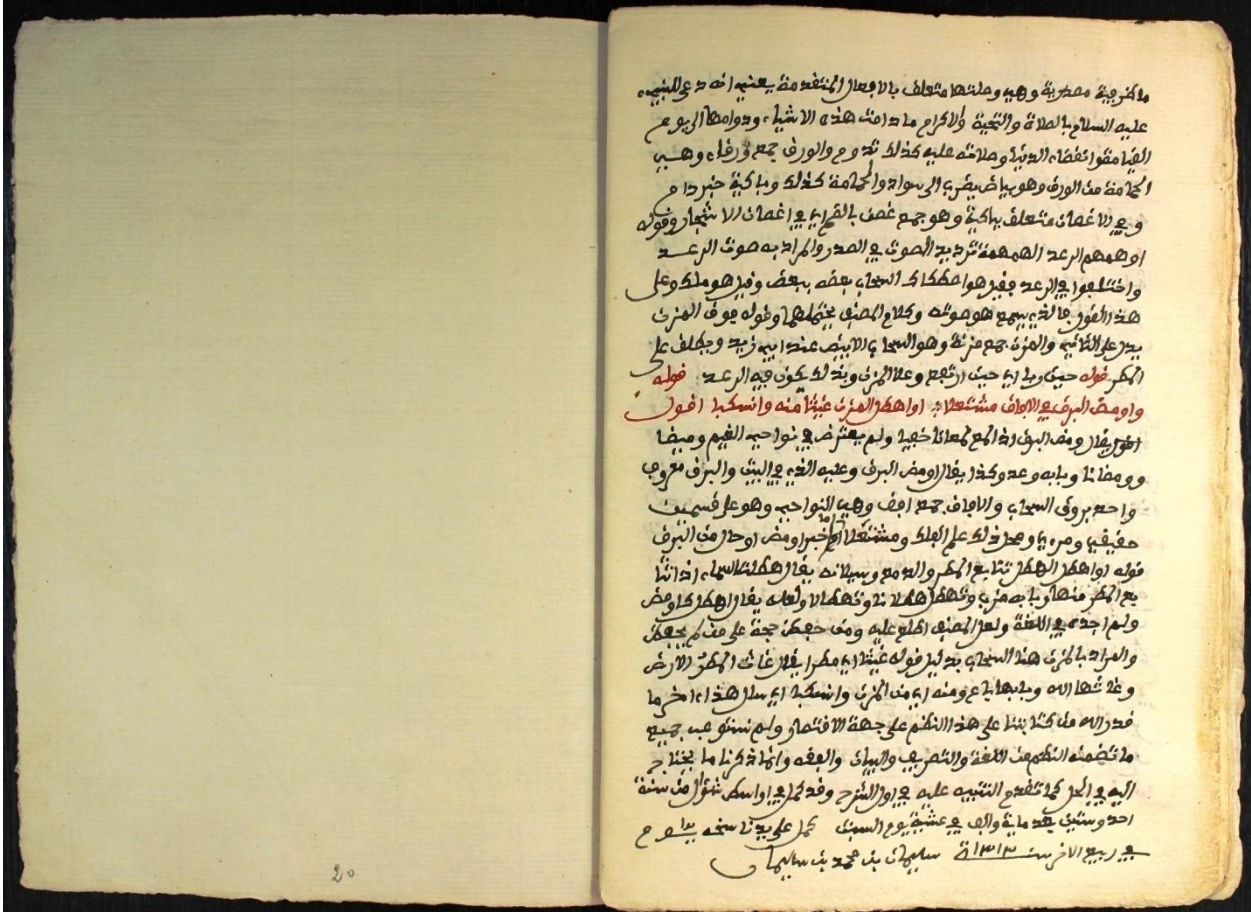 ما ظرفية مصدرية وهي وصلتها متعلق بالافعال المتقدمة يعني انه دعى للنبيء
عليه السلام بالصلاة والتحية والاكرام ما دامت هذه الاشياء ودوامها الى يوم
القيامة وانقضاء الدنيا وصلاته عليه كذلك تدوم والورق جمع ورقاء وهي
الحمامة من الورق وهو بياض يضرب الى سواد والحمامة كذلك وباكية خبر دام
وفي الاغصان متعلق بباكية وهو جمع غصن بالضم اي في اغصان الاشجار وقوله
او همهم الرعد الهمهمة ترديد الصوت في الصدر والمراد به صوت الرعد
واختلفوا في الرعد فقيل هو اصطكاك السحاب بعضه ببعض وقيل هو ملك وعلى
هذا القول فالذي يسمع هو صوته وكلام المصنف يحتملهما وقوله فوق المزن
يدل على الثاني والمزن جمع مزنة وهو السحاب الابيض عند ابي زيد ويطلق على
المطر قوله حين ربا اي حين ارتفع وعلا المزن وبذلك يكون فيه الرعد قوله
واومض البرق في الافاق مشتعلا او اهطل المزن غيثا منه وانسكبا اقول
اقول يقال ومض البرق اذا لمع لمعانا خفيا ولم يعترض في نواحي الغيم وميضا
وومضانا وبابه وعد وكذا يقال اومض البرق وعليه الذي في البيت والبرق معروف
واحد بروق السحاب والافاق جمع افق وهي النواحي وهو على قسمين
حقيقي ومرءي ومحل ذلك علم الفلك ومشتعلا اما خبر اومض او حال من البرق
قوله او اهطل الهطل تتابع المطر والدمع وسيلانه يقال هطلت السماء اذا تتا
بع المطر منها وبابه ضرب وتهطل هطلانا وتهطالا ولعله يقال اهطل كاومض
ولم اجده في اللغة ولعل المصنف اطلع عليه ومن حفظ حجة على من لم يحفظ
والمراد بالمزن هنا السحاب بدليل قوله غيثا اي مطرا يقال غاث المطر الارض
وغاثها الله وبابها باع ومنه اي من المزن وانسكبا اي سال هذا اخر ما
قدر الله من كتابتنا على هذا النظم على جهة الاختصار ولم نستوعب جميع
ما تضمنه النظم من اللغة والتصريف والبيان والفقه وانما ذكرنا ما يحتاج
اليه في الحل كما تقدم التنبيه عليه في اول الشرح وقد كمل في اواسط شوال من سنة
احد وستين بعد ماية والف في عشية يوم السبت كمل على يد ناسخه يوم
في ربيع الاخر سنة ١٣١٣ سليمان بن محمد بن سليمان
20